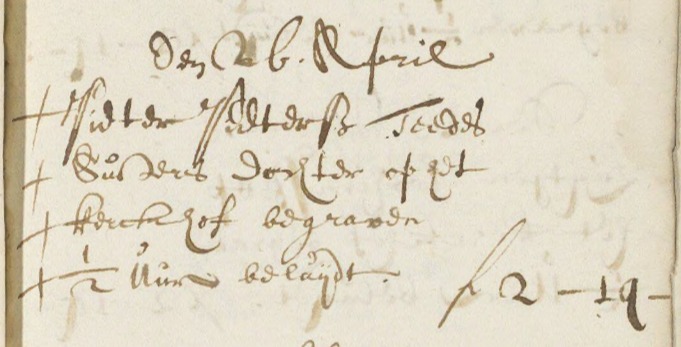 Den 26. April
Pieter Pietersz Teedes
Susters dochter op het
kerckhof begraven
½ Uur beluijdt. f 2 - 19 -